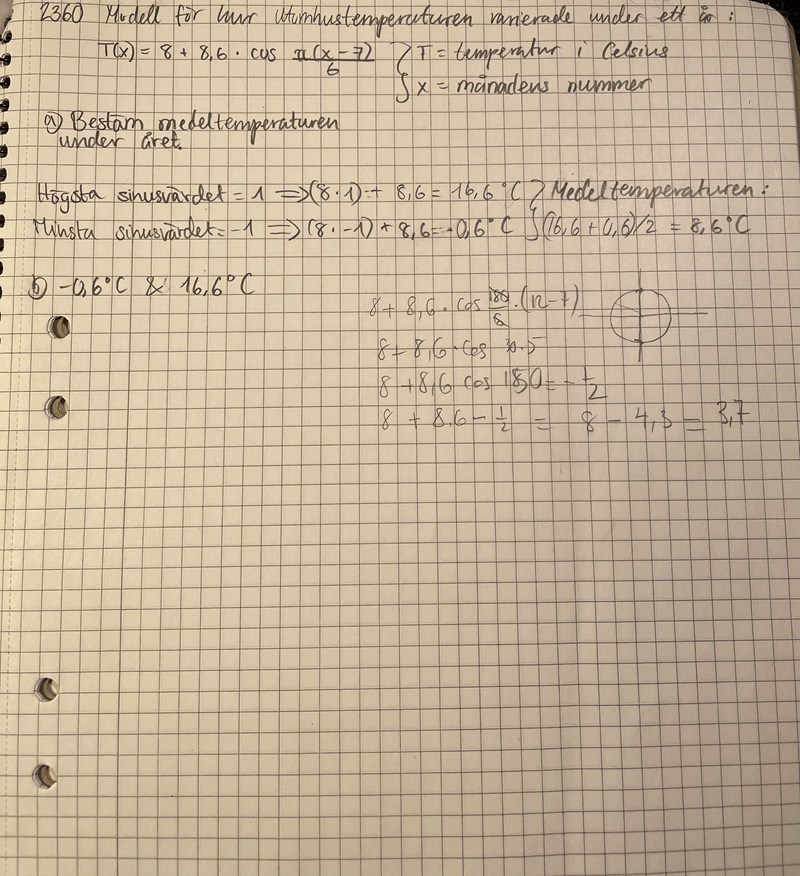 2360 Modell för hur utomhustemperaturen varierade under ett år :
T(x) = 8 + 8,6 · cos π(x-7)/6 } T = temperatur i Celsius
x = månadens nummer
a) Bestäm medeltemperaturen
under året.
Högsta sinusvärdet = 1 => (8·1) + 8,6 = 16,6 °C } Medeltemperaturen :
Minsta sinusvärdet = -1 => (8·-1) + 8,6 = -0,6 °C (16,6 + 0,6)/2 = 8,6 °C
b) -0,6°C & 16,6°C
8 + 8,6 · cos 180/6 · (12-7)
8 + 8,6 · cos 30·5
8 + 8,6 cos 150 = -1/2
8 + 8,6 - 1/2 = 8 - 4,3 = 3,7